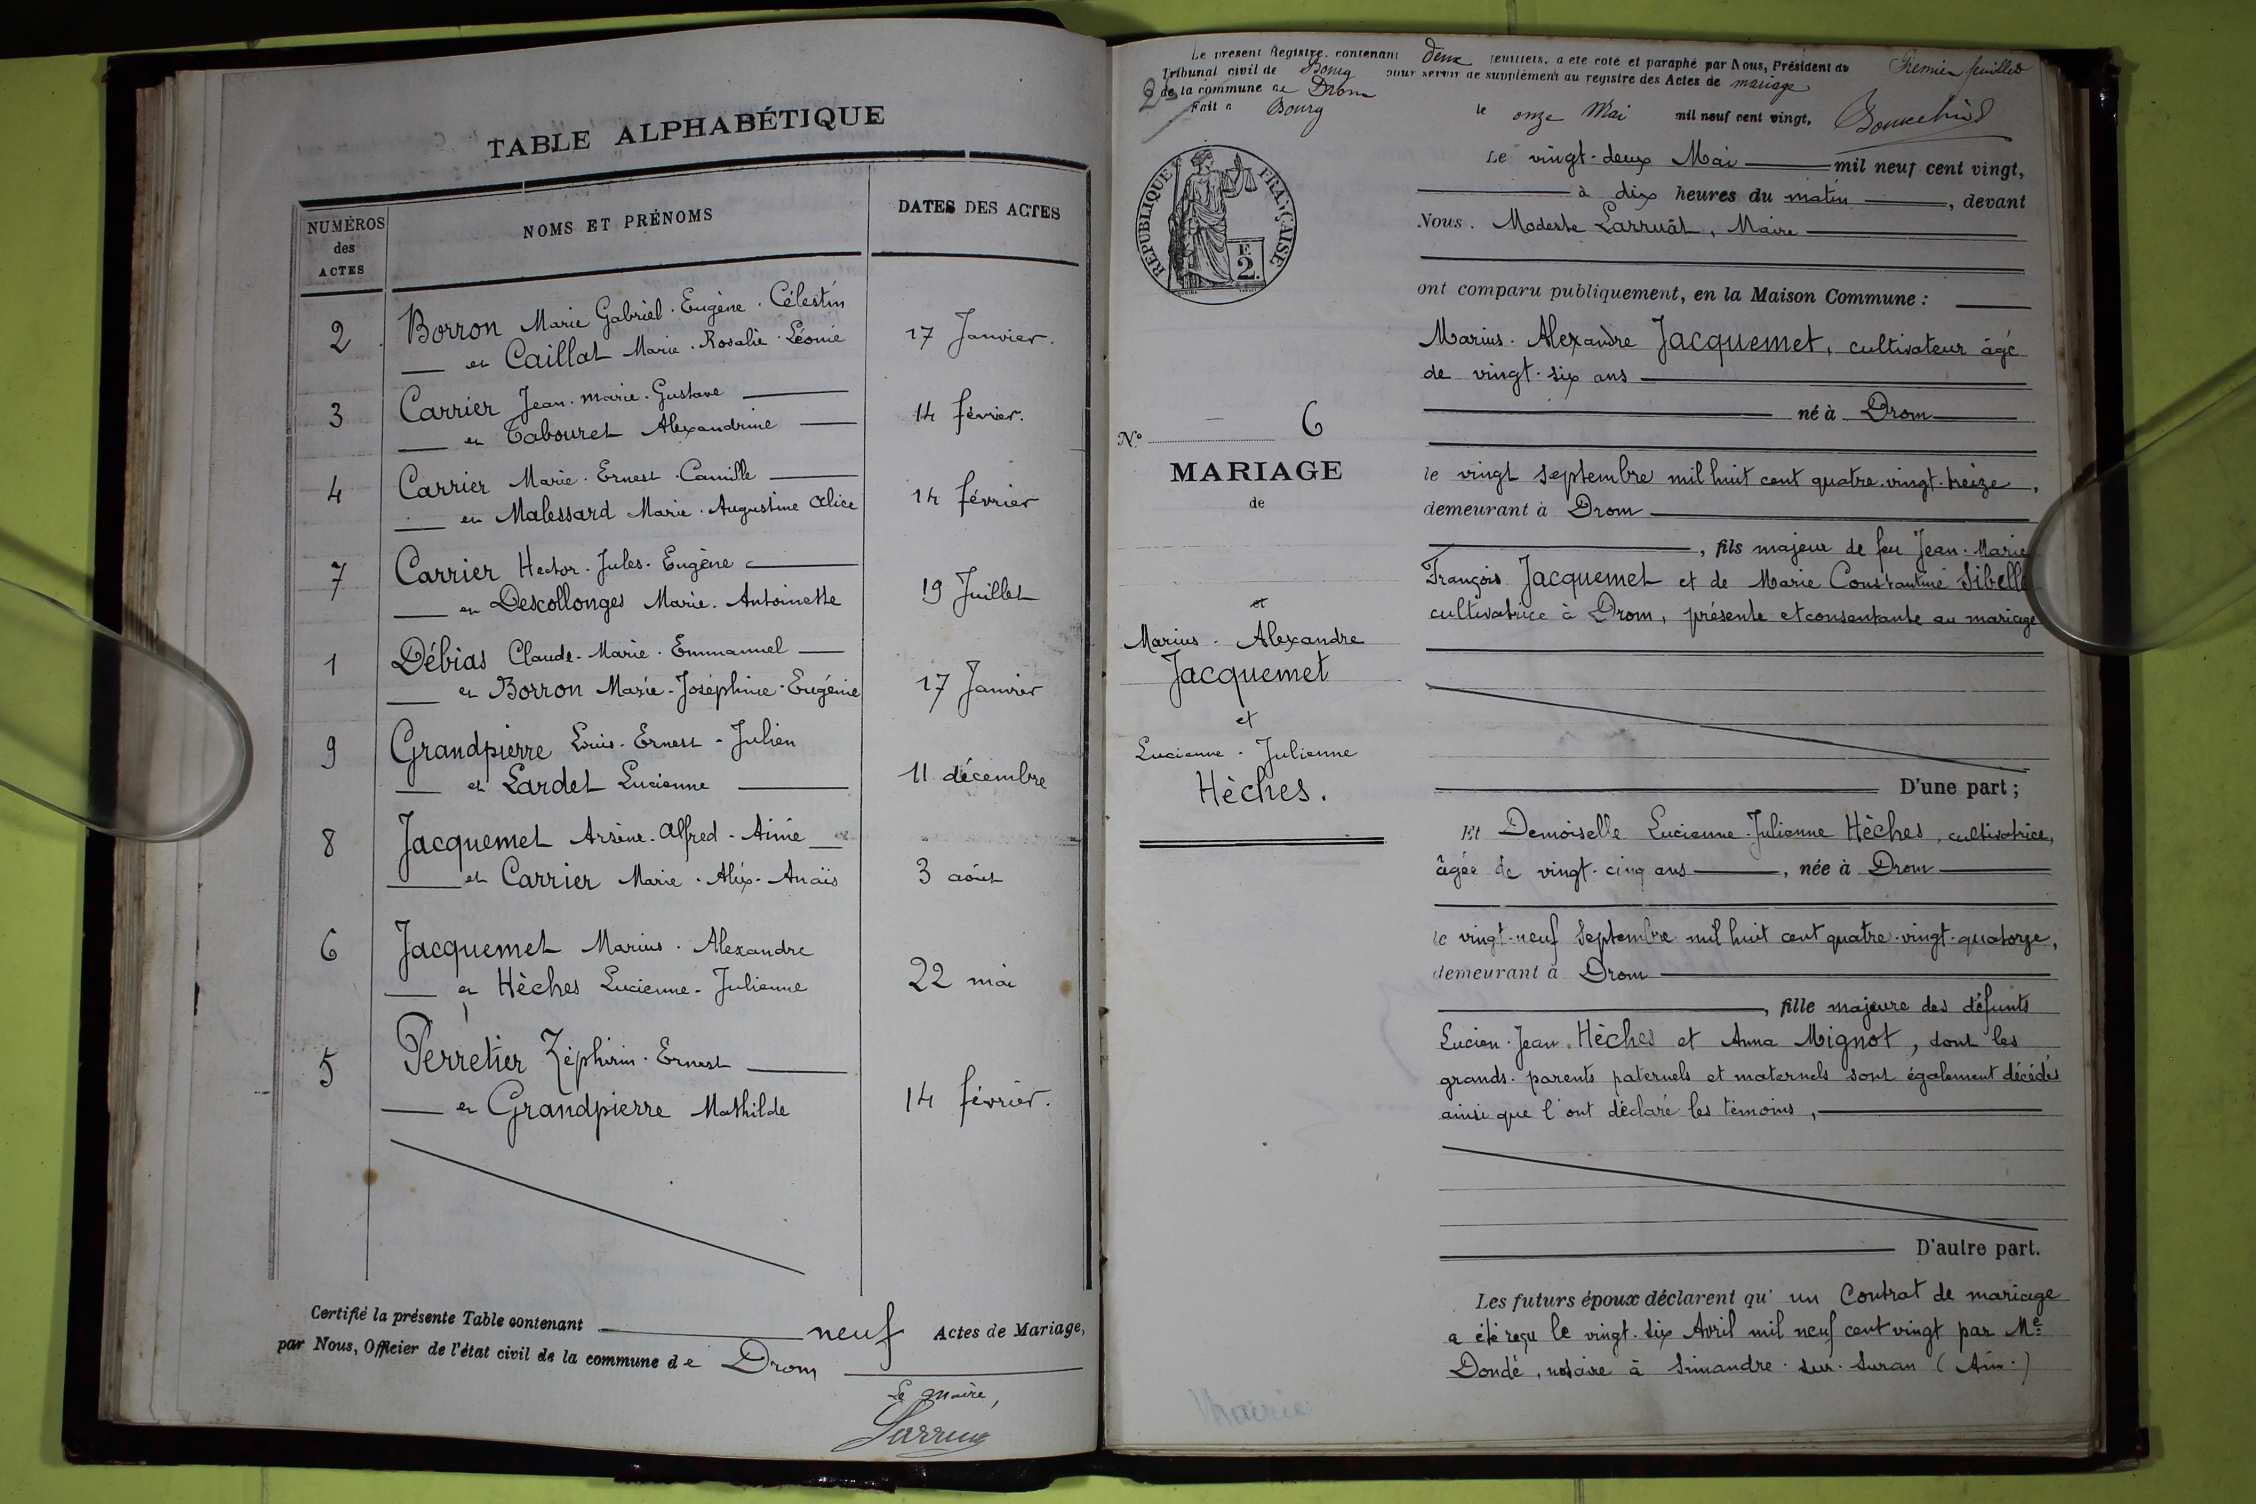 TABLE ALPHABÉTIQUE
NUMÉROS
des
ACTES
NOMS ET PRÉNOMS
DATES DES ACTES
2 Borron Marie Gabriel . Eugène . Célestin
et Caillat Marie . Rosalie . Léonie 17 Janvier.
3 Carrier Jean . Marie . Gustave 14 février.
et Tabouret Alexandrine
4 Carrier Marie . Ernest . Camille 14 février
et Malessard Marie . Augustine Alice
7 Carrier Hector . Jules . Eugène
et Descollonges Marie . Antoinette 19 Juillet
1 Débias Claude - Marie . Emmanuel
et Borron Marie - Joséphine - Eugénie 17 Janvier
9 Grandpierre Louis - Ernest - Julien
et Lardet Lucienne 11 décembre
8 Jacquemet Arsène - Alfred - Aimé
et Carrier Marie . Alix - Anaïs 3 août
6 Jacquemet Marius . Alexandre
et Hèches Lucienne - Julienne 22 mai
5 Perretier Zéphirin . Ernest
et Grandpierre Mathilde 14 février.
Certifié la présente Table contenant neuf Actes de Mariage,
par Nous, Officier de l'état civil de la commune de Drom
Le maire,
Le présent Registre, contenant deux feuillets, a été coté et paraphé par Nous, Président du
Premier feuillet
Tribunal civil de Bourg pour servir de supplément au registre des Actes de mariage
de la commune de Drom
Fait à Bourg le onze Mai mil neuf cent vingt,
RÉPUBLIQUE FRANÇAISE
F.
2.
Le vingt-deux Mai mil neuf cent vingt,
à dix heures du matin, devant
Nous. Modeste Larruat, Maire
ont comparu publiquement, en la Maison Commune :
Marius . Alexandre Jacquemet, cultivateur âgé
de vingt-six ans
né à Drom
le vingt septembre mil huit cent quatre-vingt-treize,
demeurant à Drom
, fils majeur de feu Jean - Marie
François Jacquemet et de Marie Constantine Sibelle
cultivatrice à Drom, présente et consentante au mariage
N° 6
MARIAGE
de
et
Marius - Alexandre
Jacquemet
et
Lucienne - Julienne
Hèches.
D'une part ;
Et Demoiselle Lucienne - Julienne Hèches, cultivatrice,
âgée de vingt-cinq ans, née à Drom
le vingt-neuf septembre mil huit cent quatre-vingt-quatorze,
demeurant à Drom
, fille majeure des défunts
Lucien - Jean Hèches et Anna Mignot, dont les
grands-parents paternels et maternels sont également décédés
ainsi que l'ont déclaré les témoins,
D'autre part.
Les futurs époux déclarent qu'un Contrat de mariage
a été reçu le vingt-six Avril mil neuf cent vingt par Me
Dondé, notaire à Simandre-sur-Suran (Ain.)
Mairie